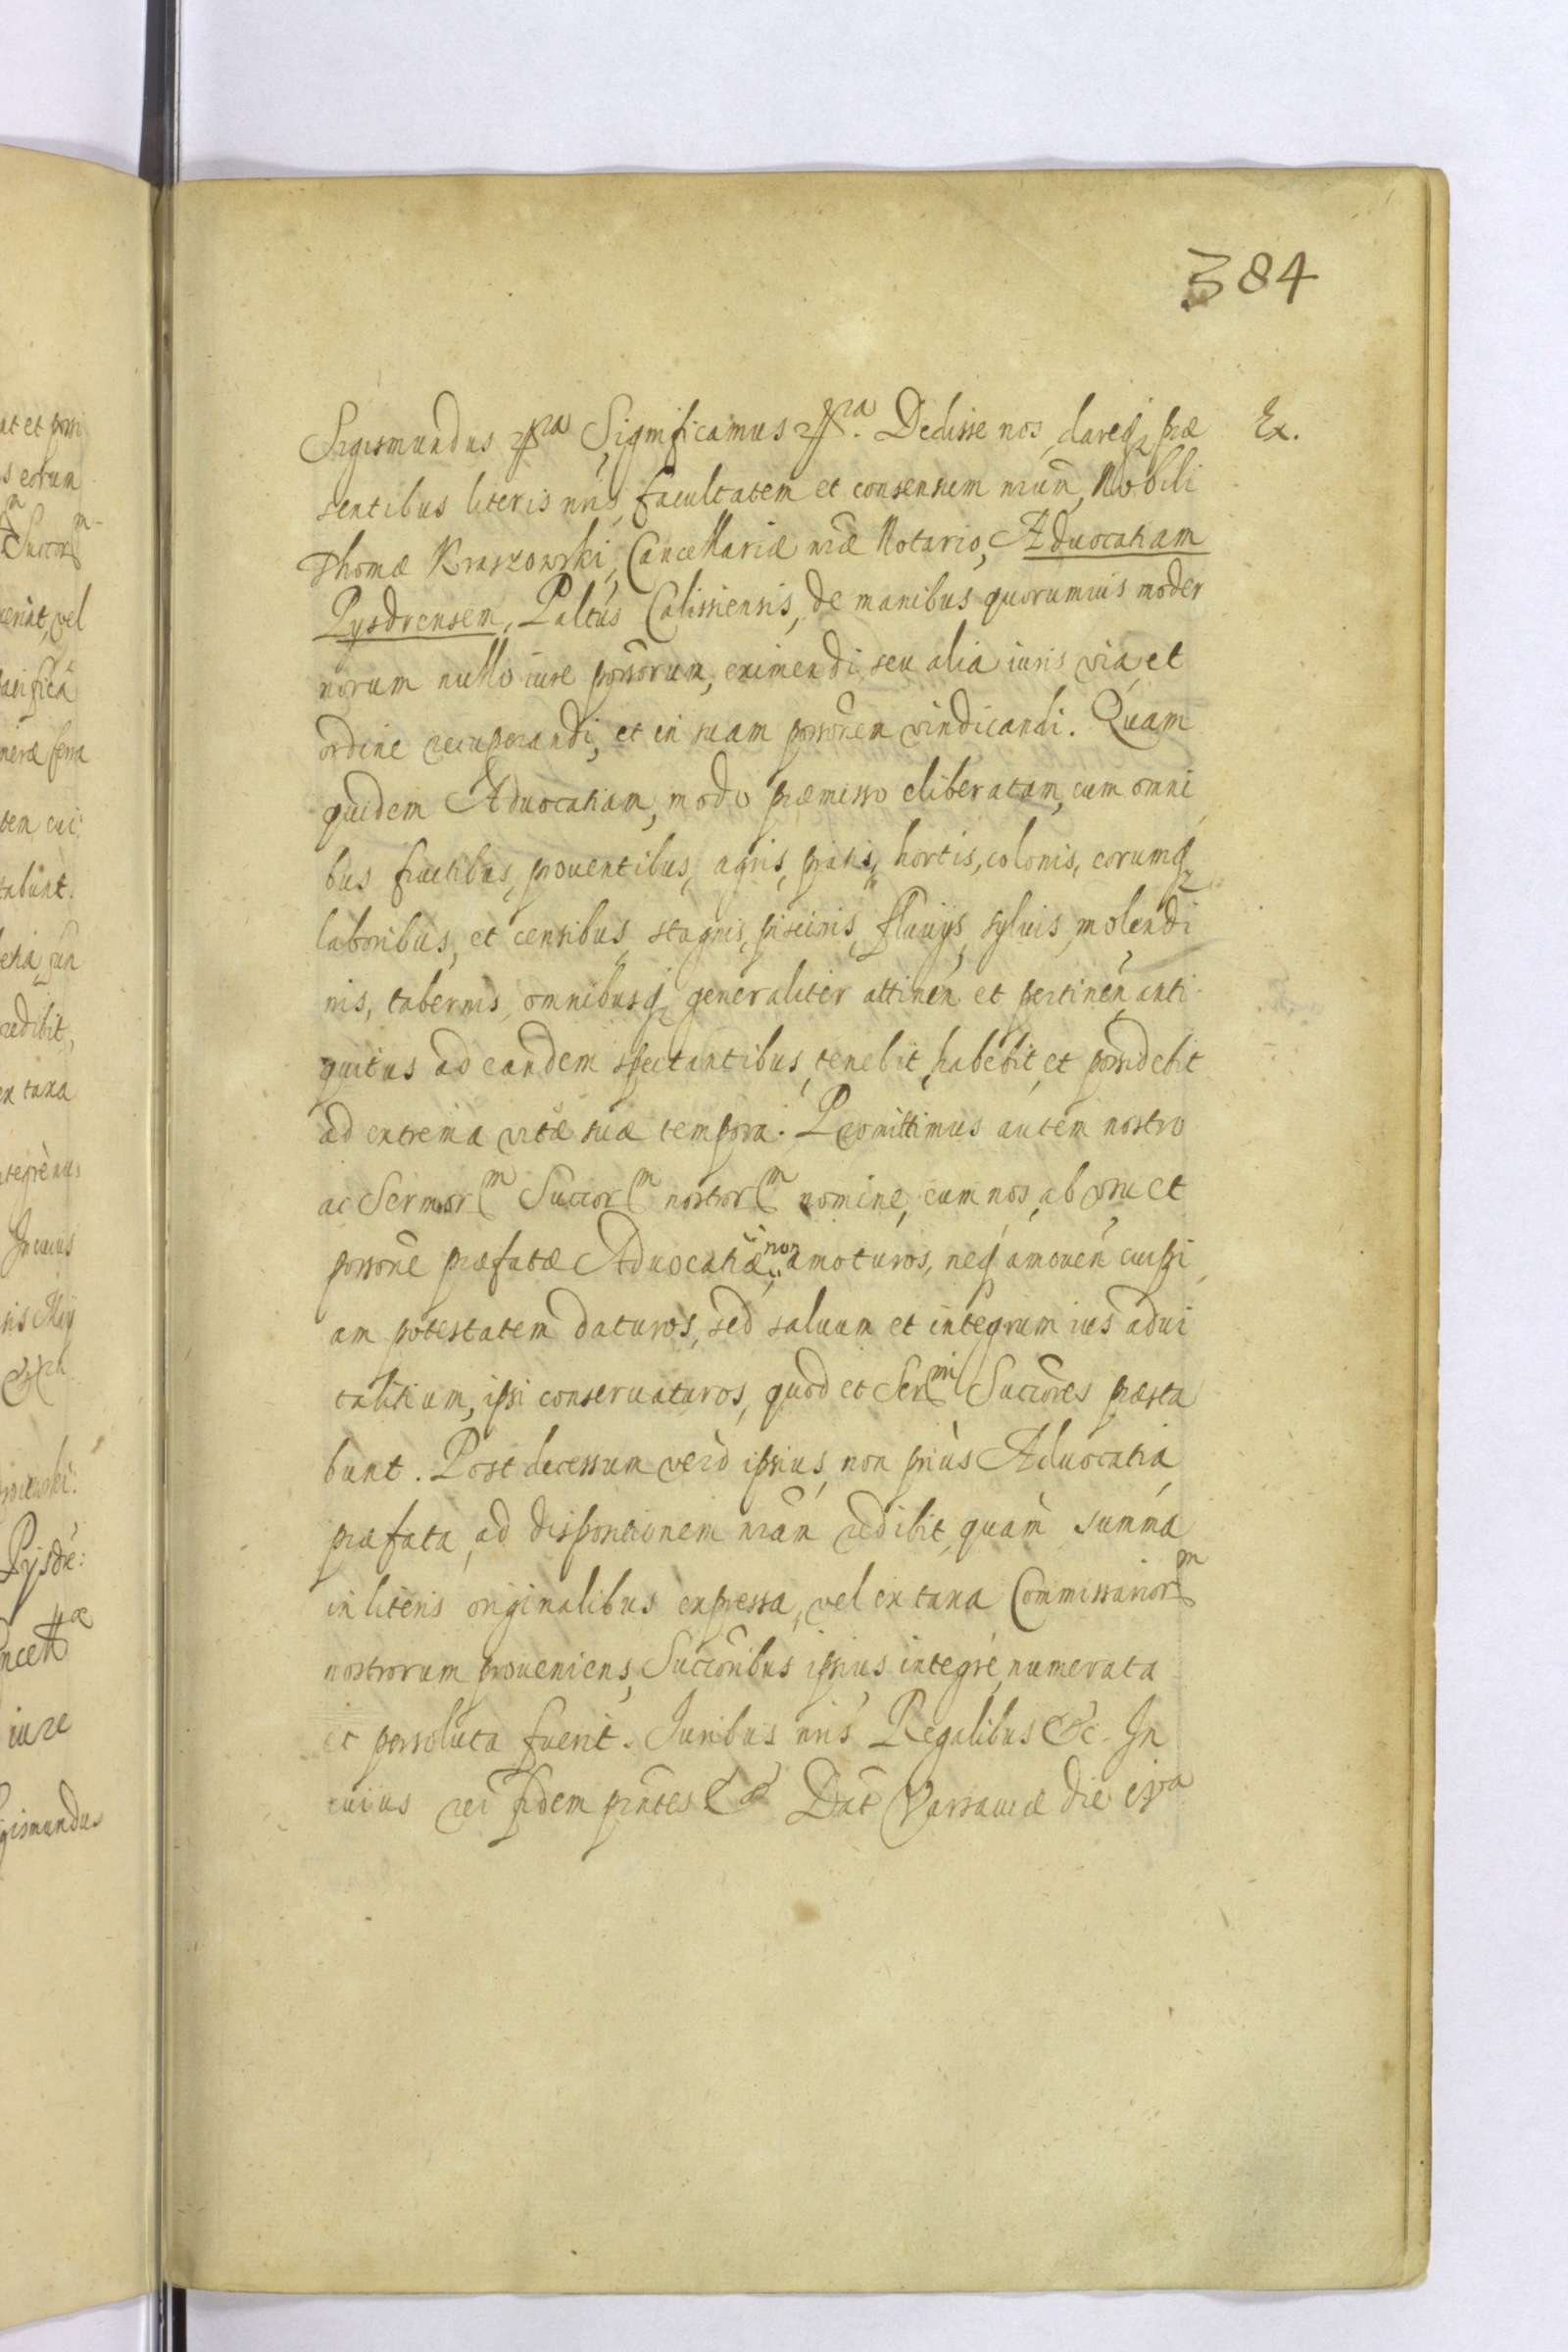 384
Sigismundus etc ut spra Significamus etc spra. Dedisse nos, dareq prae Ex.
sentibus literis nris, facultatem et consensum nrum, Nobili
Thomae Kraszowski, Cancellariae nrae Notario, Aduocatiam
Pysdrensem, Paltus Calissiensis, de manibus quorumuis moder
norum nullo iure possorum, eximendi, seu alia iuris via, et
ordine recuperandi, et in suam possonem vindicandi. Quam
quidem Aduocatiam, modo praemisso eliberatam, cum omni
bus fructibus, prouentibus, agris, pratis, hortis, colonis, eorumq
laboribus, et censibus, stagnis, piscinis, fluuijs, syluis, molendi
nis, tabernis, omnibusq generaliter attinen et pertinen, anti
quitus ad eandem spectantibus, tenebit, habebit, et possidebit
ad extrema vitae suae tempora. Promittimus autem nostro
ac Sermorm Succorm nostrorm nomine, eum nos, ab usu et
possone praefatae Aduocatiae, non amoturos, neq amouen cuipi
am potestatem daturos, sed saluum et integrum ius adui
talitium, ipsi conseruaturos, quod et Sermi Succores praesta
bunt. Post decessum verò ipsius, non priùs Aduocatia
praefata, ad dispositionem nram redibit, quàm summa
in literis originalibus expressa, vel ex taxa Commissariorm
nostrorum proueniens, Succoribus ipsius integrè numerata
et persoluta fuerit. Iuribus nris Regalibus &c. In
cuius rei fidem pntes &c Dat Varsauiae die
at et possi
s eorum
Succorm
erint, vel
tabunt.
redibit,
ex taxa
integrè nu
In cuius
Pysdre:
iure
gismundus